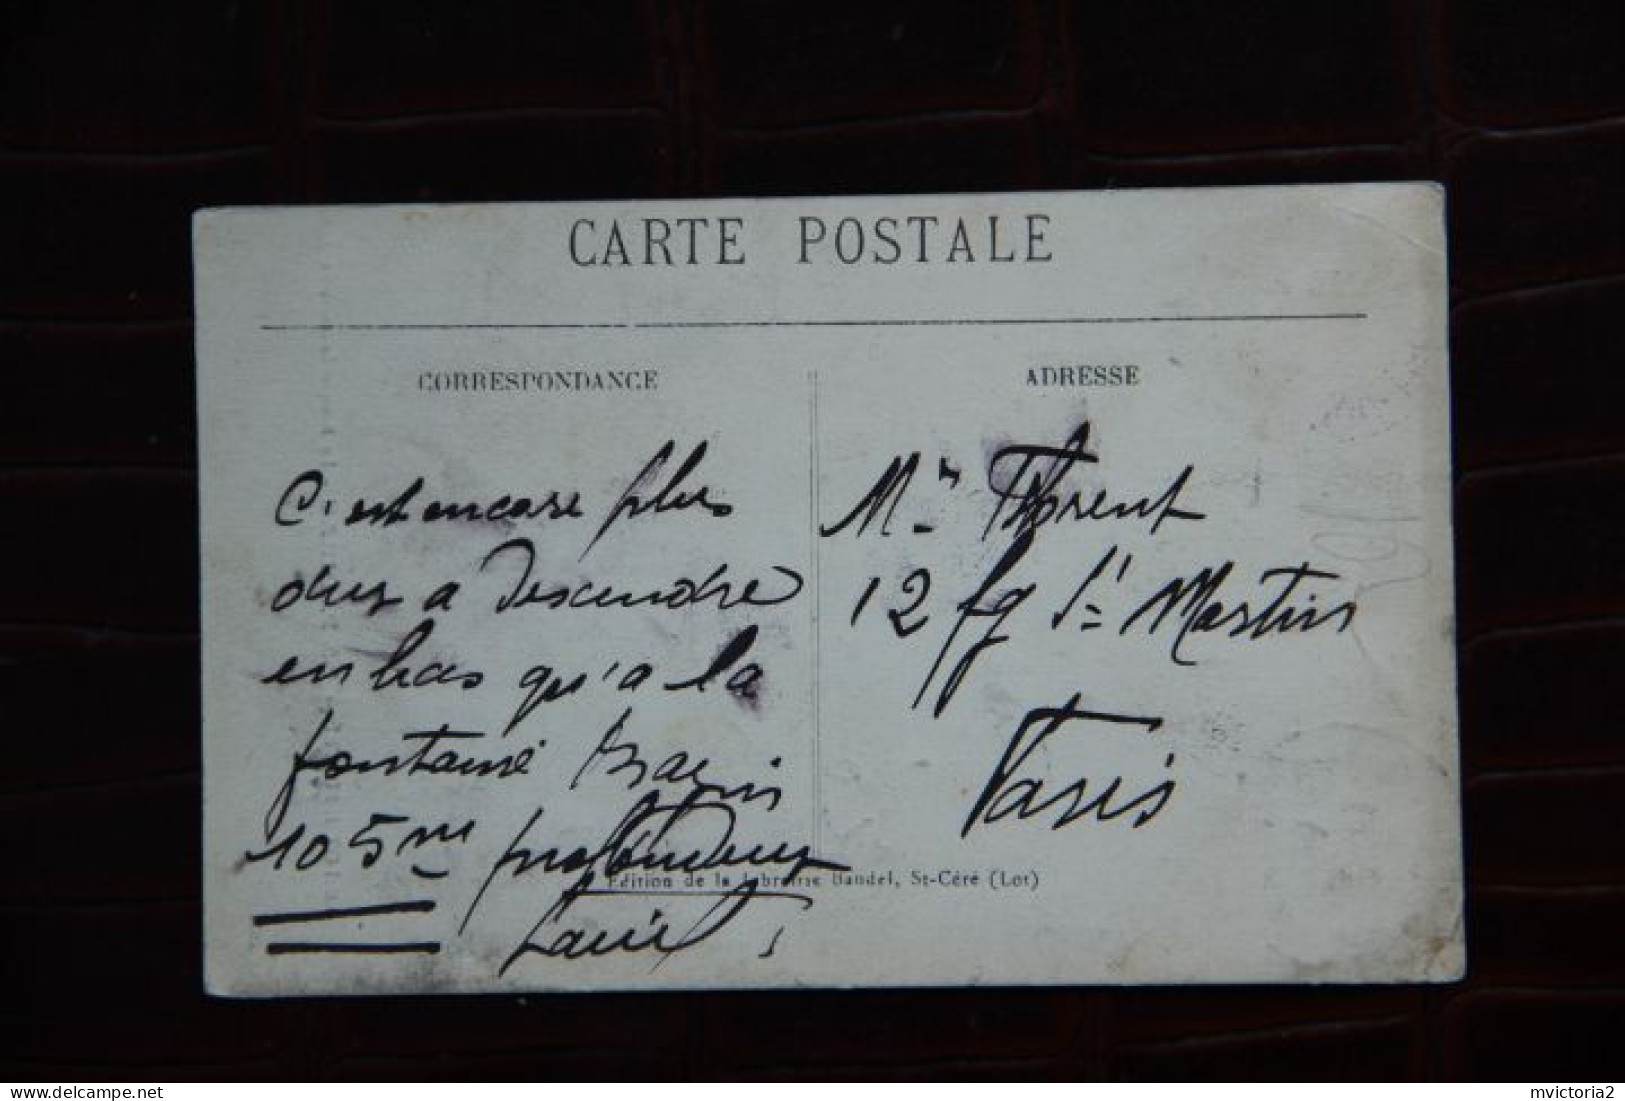 CARTE POSTALE
CORRESPONDANCE
ADRESSE
C'est encore plus
dur a descendre
en bas qu'a la
fontaine
105 m profondeur
Mr Florent
12 fg St Martin
Paris
Edition de la Librairie Baudel, St-Céré (Lot)
delcampe.net
mvictoria2